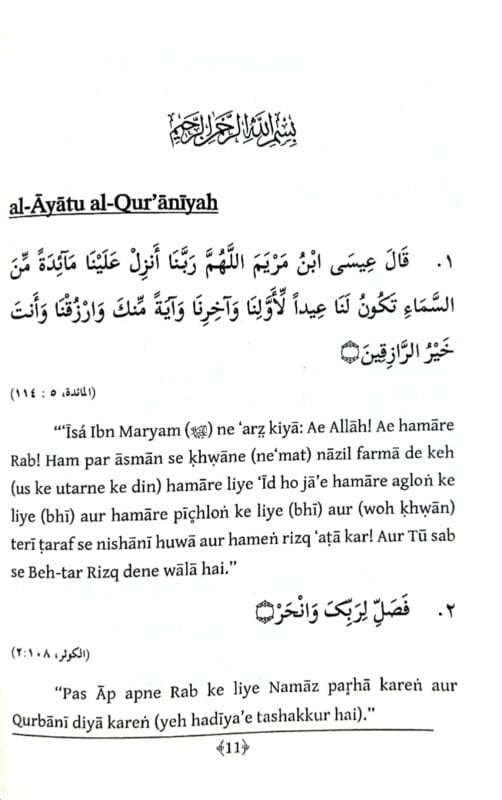 بِسْمِ اللَّهِ الرَّحْمَٰنِ الرَّحِيمِ
al-Āyātu al-Qur’āniyah
١. قَالَ عِيسَى ابْنُ مَرْيَمَ اللَّهُمَّ رَبَّنَا أَنزِلْ عَلَيْنَا مَآئِدَةً مِّنَ
السَّمَاءِ تَكُونُ لَنَا عِيداً لِّأَوَّلِنَا وَآخِرِنَا وَآيَةً مِّنكَ وَارْزُقْنَا وَأَنتَ
خَيْرُ الرَّازِقِينَ۝
(المائدة، ٥ : ١١٤)
“‘Īsá Ibn Maryam (ﷺ) ne ‘arẓ kiyā: Ae Allāh! Ae hamāre
Rab! Ham par āsmān se ḳhwāne (ne‘mat) nāzil farmā de keh
(us ke utarne ke din) hamāre liye ‘Īd ho jā’e hamāre agloṅ ke
liye (bhī) aur hamāre pīçhloṅ ke liye (bhī) aur (woh ḳhwān)
terī ṭaraf se nishānī huwā aur hameṅ rizq ‘aṭā kar! Aur Tū sab
se Beh-tar Rizq dene wālā hai.”
٢. فَصَلِّ لِرَبِّكَ وَانْحَرْ۝
(الكوثر، ٢:١٠٨)
“Pas Āp apne Rab ke liye Namāz paṛhā kareṅ aur
Qurbānī diyā kareṅ (yeh hadīya’e tashakkur hai).”
﴾11﴿